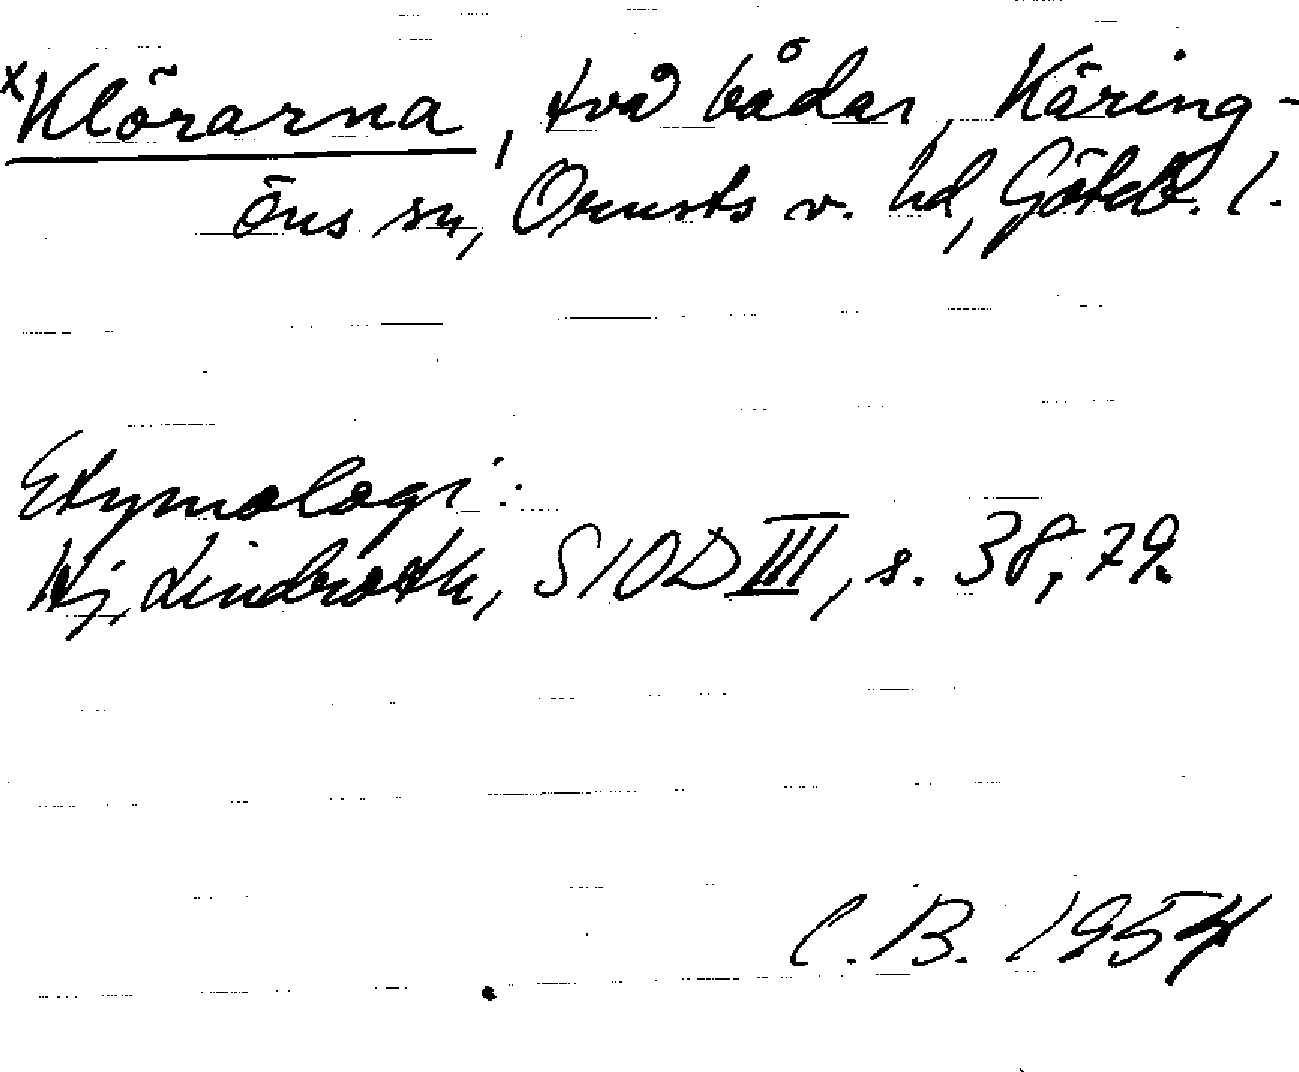 x Klörarna, två bådar, Käring-
öns sn, Orusts v. hd, Göteb. l.
Etymologi:
Hj. Lindroth, SIOD III, s. 38, 79.
C. B. 1954